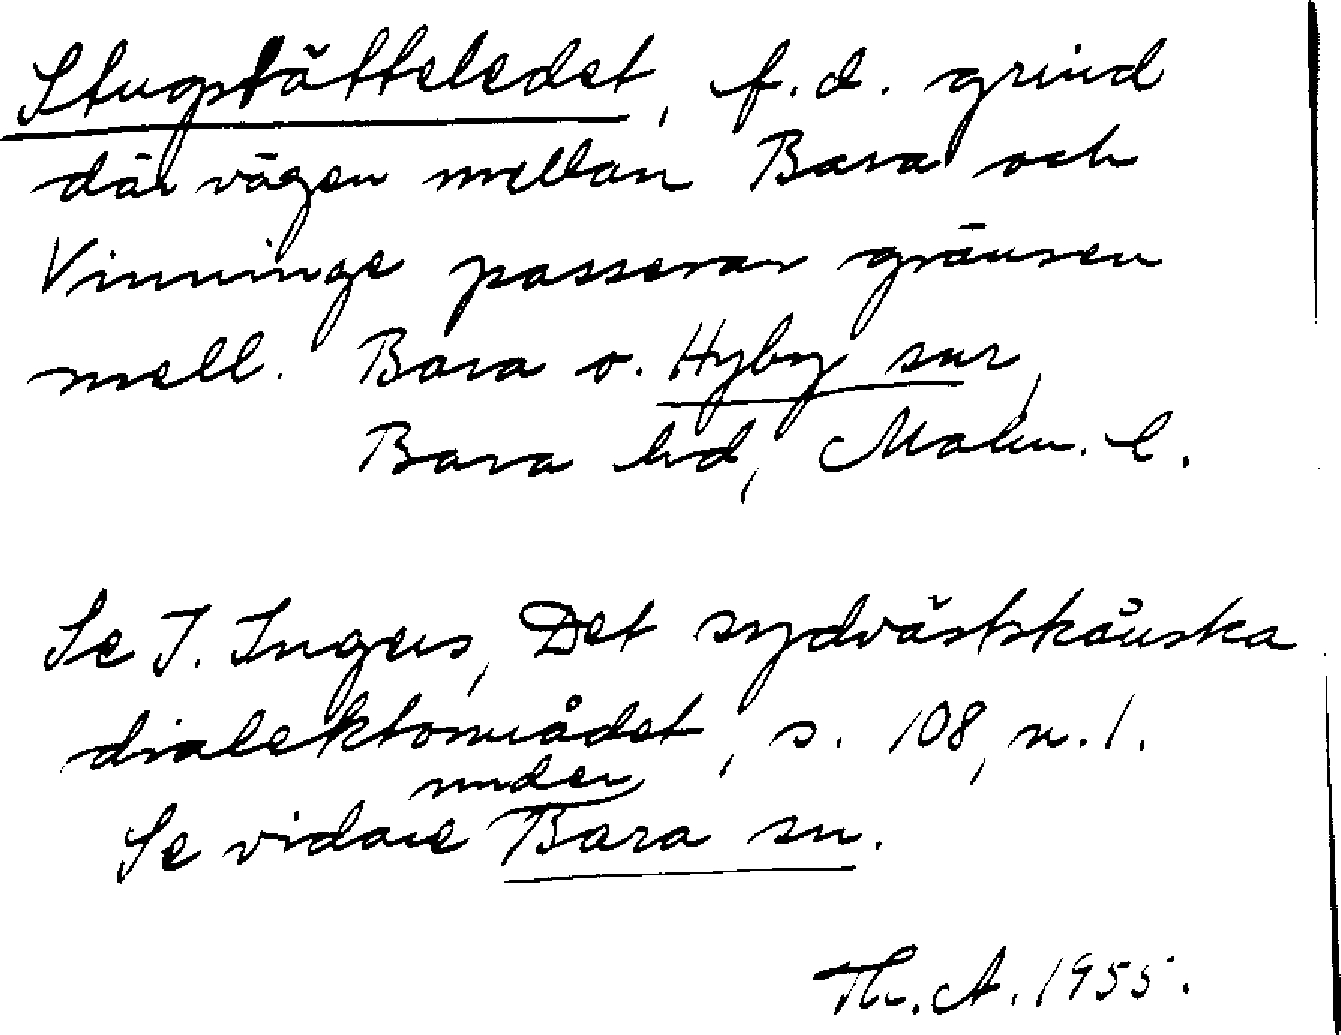 Stugstätteledet, f.d. grind
där vägen mellan Bara och
Vinninge passerar gränsen
mell. Bara o. Hyby snr,
Bara hd, Malm. l.
Se I. Ingers, Det sydvästskånska
dialektområdet, s. 108, n. 1.
under
Se vidare Bara sn.
Th. A. 1955.